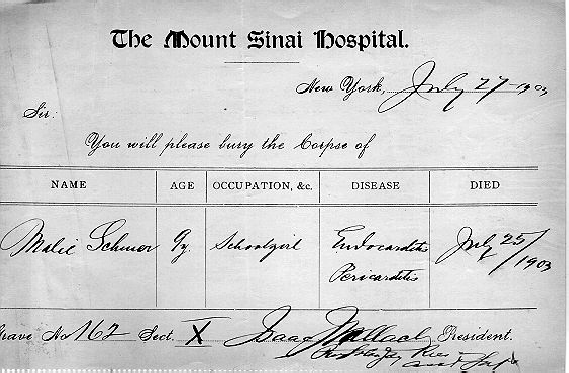 The Mount Sinai Hospital.
New York, July 27 1903
Sir:
You will please bury the Corpse of
NAME AGE OCCUPATION, &c. DISEASE DIED
Malie 9y. Schoolgirl Endocarditis July 25/1903
Pericarditis
Grave No 162 Sect. X Isaac Wallach President.